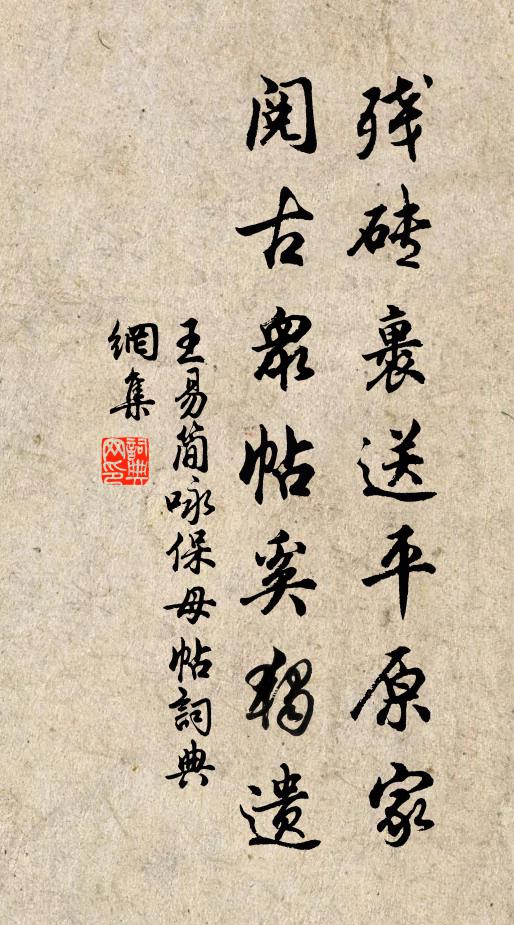 残砖裹送平原家
阅古众帖奚独遗
王易简咏保母帖詞典
網集
詞典网印